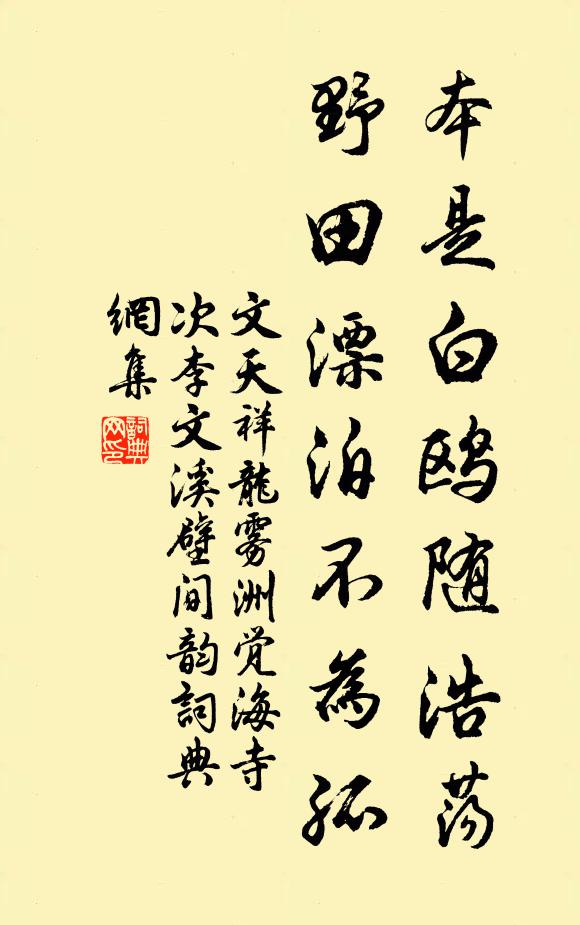 本是白鸥随浩荡
野田漂泊不為孤
文天祥龍雾洲觉海寺
次李文溪壁间韵詞典
網集
詞典
网印